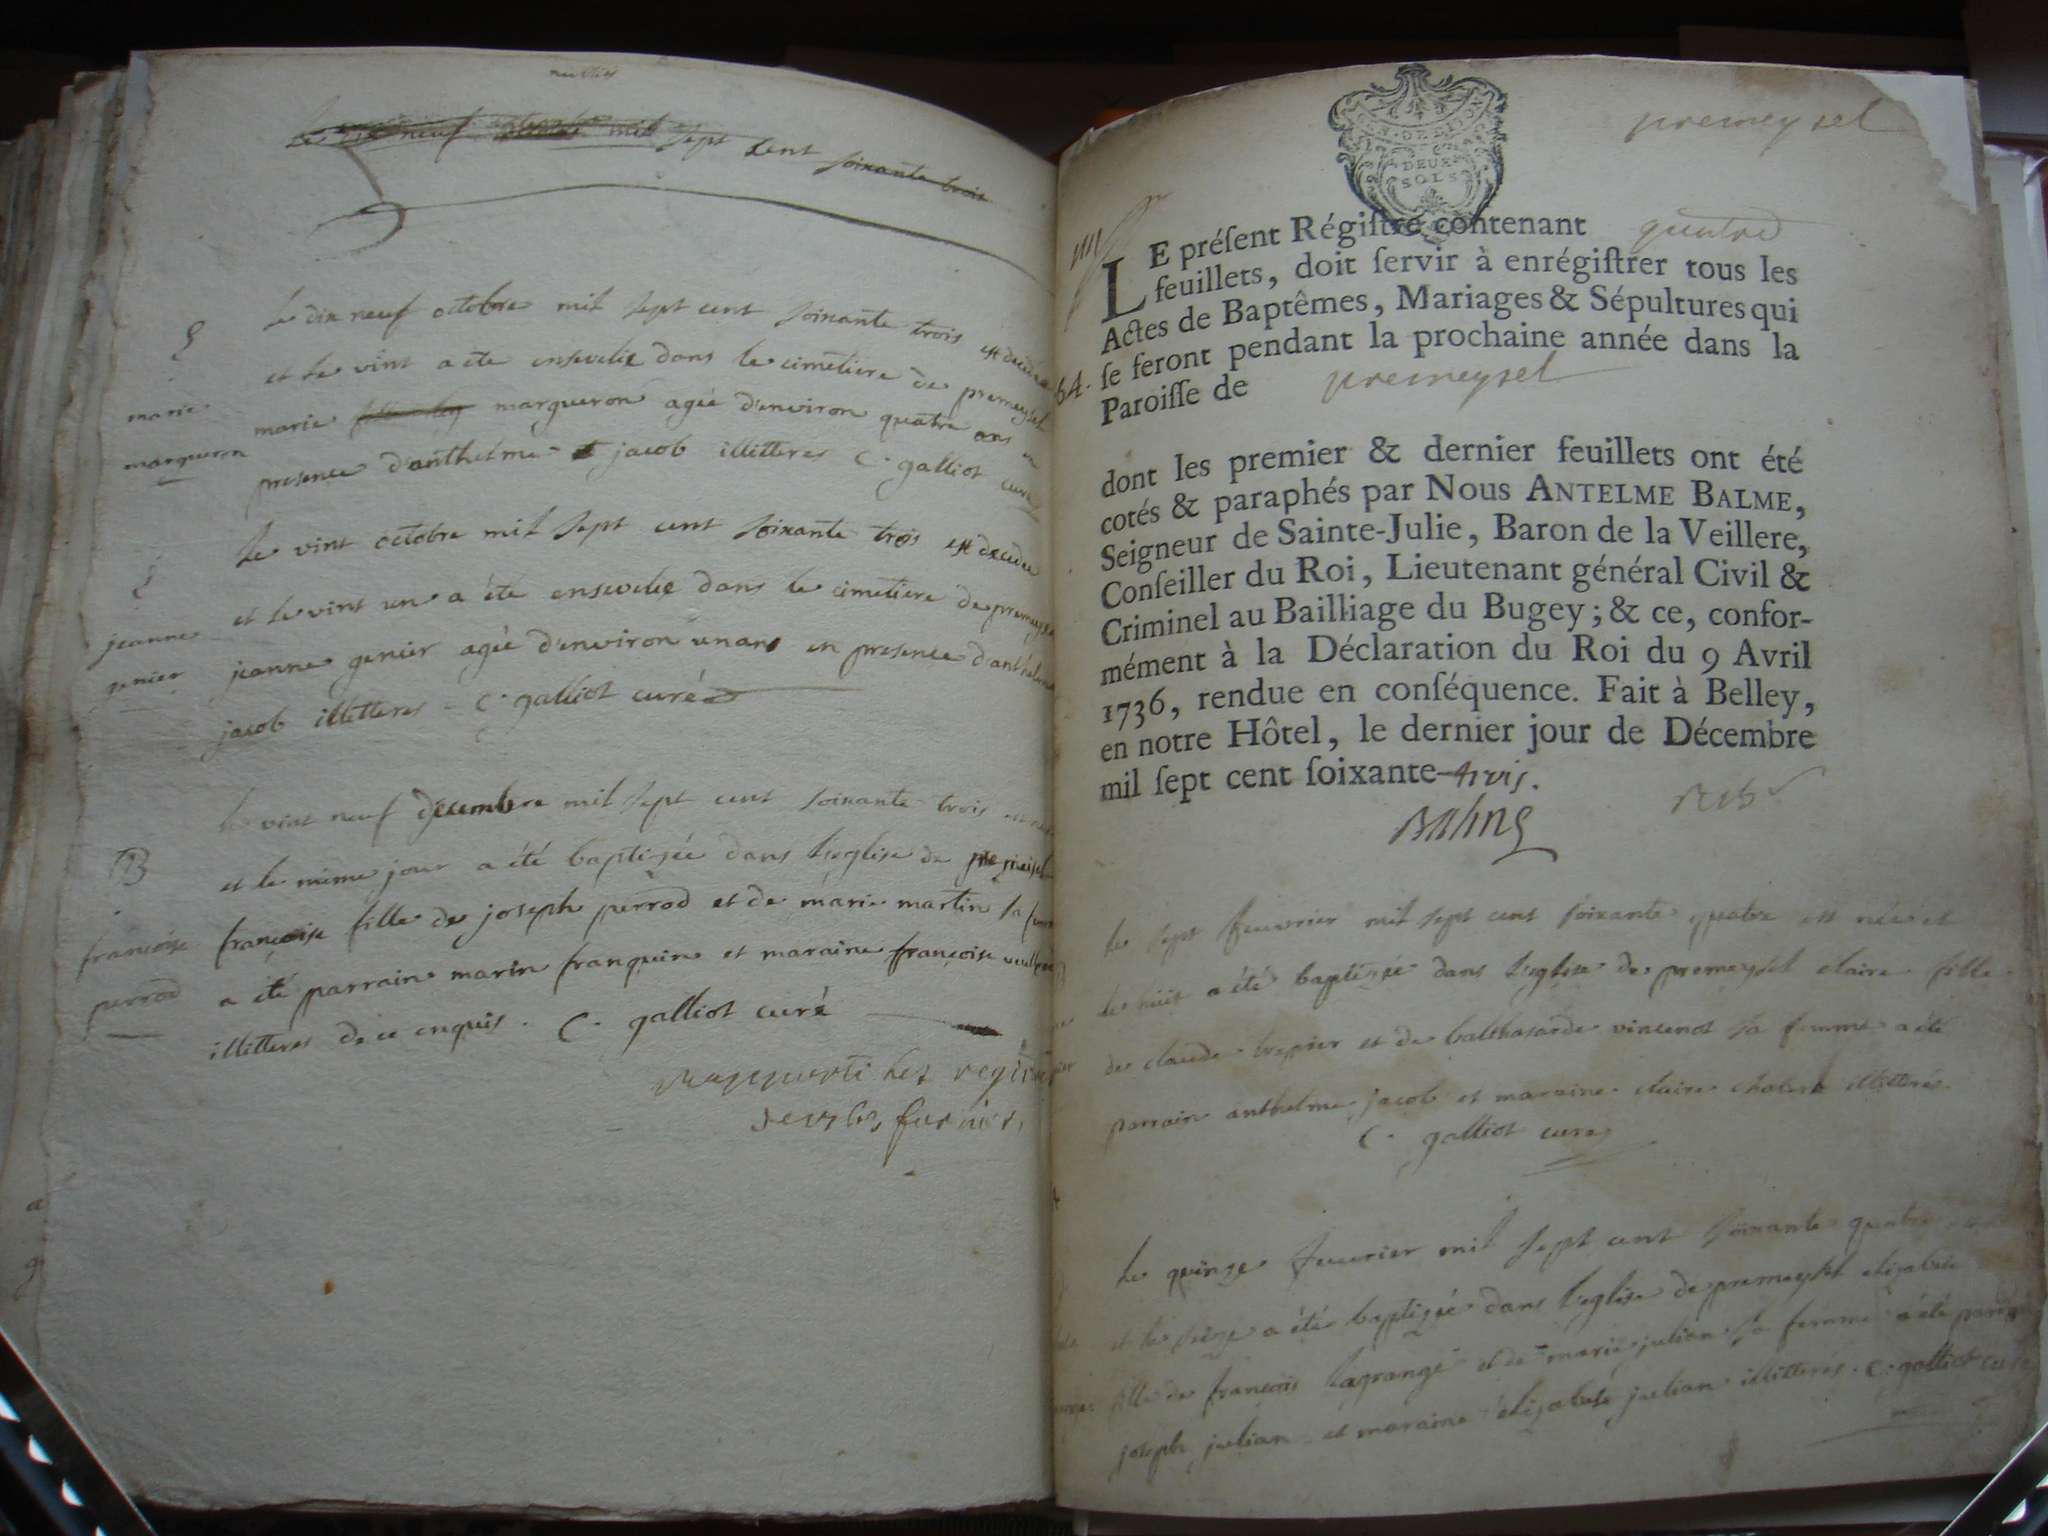 Le dix neuf octobre mil sept cent soixante trois
le dix neuf octobre mil sept cent soixante trois est decedée
et le vint a été ensevelie dans le cimetiere de premeysel
marie
marie margueron agée d'environ quatre ans en
margueron
presence d'anthelme jacob illitteres C. galliot curé
le vint octobre mil sept cent soixante trois est decedée
et le vint un a été ensevelie dans le cimetiere de premeysel
jeanne
jeanne genier agée d'environ un ans en presence d'anthelme
genier
jacob illitteres C. galliot curé
le vint neuf decembre mil sept cent soixante trois est née
B
et le même jour a été baptizée dans l'eglise de premeisel
françoise
françoise fille de joseph perrod et de marie martin sa femme
perrod
a été parrain marin franquin et maraine françoise
illitteres de ce enquis. C. galliot curé
premeysel
GEN. DE DIJON
DEUX
SOLS
LE préſent Régiſtre contenant quatre
feuillets, doit ſervir à enrégiſtrer tous les
Actes de Baptêmes, Mariages & Sépultures qui
64. ſe feront pendant la prochaine année dans la
Paroiſſe de premeysel
dont les premier & dernier feuillets ont été
cotés & paraphés par Nous ANTELME BALME,
Seigneur de Sainte-Julie, Baron de la Veillere,
Conſeiller du Roi, Lieutenant général Civil &
Criminel au Bailliage du Bugey; & ce, confor-
mément à la Déclaration du Roi du 9 Avril
1736, rendue en conſéquence. Fait à Belley,
en notre Hôtel, le dernier jour de Décembre
mil ſept cent ſoixante-trois.
Balme
le sept feuvrier mil sept cent soixante quatre est née et
le huit a été baptizée dans l'eglise de premeysel claire fille
de claude trepier et de balthasarde vincenot sa femme a été
parrain anthelme jacob et maraine claire illitterés
C. galliot curé
le quinze feuvrier mil sept cent soixante quatre
et le seize a été baptizée dans l'eglise de premeysel elizabete
fille de françois lagrange et de marie julian sa femme a été parrain
joseph julian et maraine elizabete julian illitterés. C. galliot curé